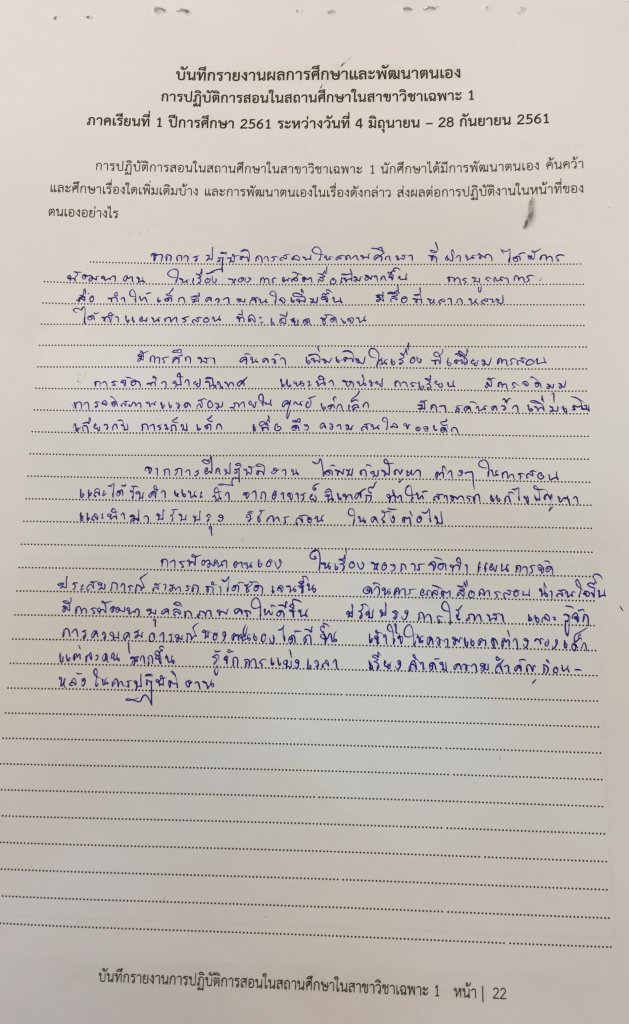 บันทึกรายงานผลการศึกษาและพัฒนาตนเอง
การปฏิบัติการสอนในสถานศึกษาในสาขาวิชาเฉพาะ 1
ภาคเรียนที่ 1 ปีการศึกษา 2561 ระหว่างวันที่ 4 มิถุนายน – 28 กันยายน 2561
การปฏิบัติการสอนในสถานศึกษาในสาขาวิชาเฉพาะ 1 นักศึกษาได้มีการพัฒนาตนเอง ค้นคว้า
และศึกษาเรื่องใดเพิ่มเติมบ้าง และการพัฒนาตนเองในเรื่องดังกล่าว ส่งผลต่อการปฏิบัติงานในหน้าที่ของ
ตนเองอย่างไร
จากการปฏิบัติการสอนในสถานศึกษา ที่ผ่านมา ได้มีการ
พัฒนาตน ในเรื่อง ของการผลิตสื่อเพิ่มมากขึ้น การบูรณาการ
สื่อ ทำให้เด็กมีความสนใจเพิ่มขึ้น มีสื่อที่หลากหลาย
ได้ทำแผนการสอน ที่ละเอียด ชัดเจน
มีการศึกษา ค้นคว้า เพิ่มเติมในเรื่อง ที่เตรียมการสอน
การจัดทำป้ายนิเทศ แนะนำหน่วยการเรียน มีการจัดมุม
การจัดสภาพแวดล้อมภายในศูนย์เด็กเล็ก มีการค้นคว้าเพิ่มเติม
เกี่ยวกับ การเก็บเด็ก เพื่อดึงความสนใจของเด็ก
จากการฝึกปฏิบัติงาน ได้พบกับปัญหา ต่างๆในการสอน
และได้รับคำแนะนำ จากอาจารย์นิเทศก์ ทำให้สามารถแก้ไขปัญหา
และนำมาปรับปรุง วิธีการสอน ในครั้งต่อไป
การพัฒนาตนเอง ในเรื่องของการจัดทำแผนการจัด
ประสบการณ์สามารถทำได้ชัดเจนขึ้น ด้านการผลิตสื่อการสอนน่าสนใจขึ้น
มีการพัฒนาบุคลิกภาพครูให้ดีขึ้น ปรับปรุงการใช้ภาษา และรู้จัก
การควบคุมอารมณ์ของตนเองได้ดีขึ้น เข้าใจในความแตกต่างของเด็ก
แต่ละคนมากขึ้น รู้จักการแบ่งเวลา เรียงลำดับความสำคัญก่อน-
หลังในการปฏิบัติงาน
บันทึกรายงานการปฏิบัติการสอนในสถานศึกษาในสาขาวิชาเฉพาะ 1 หน้า | 22